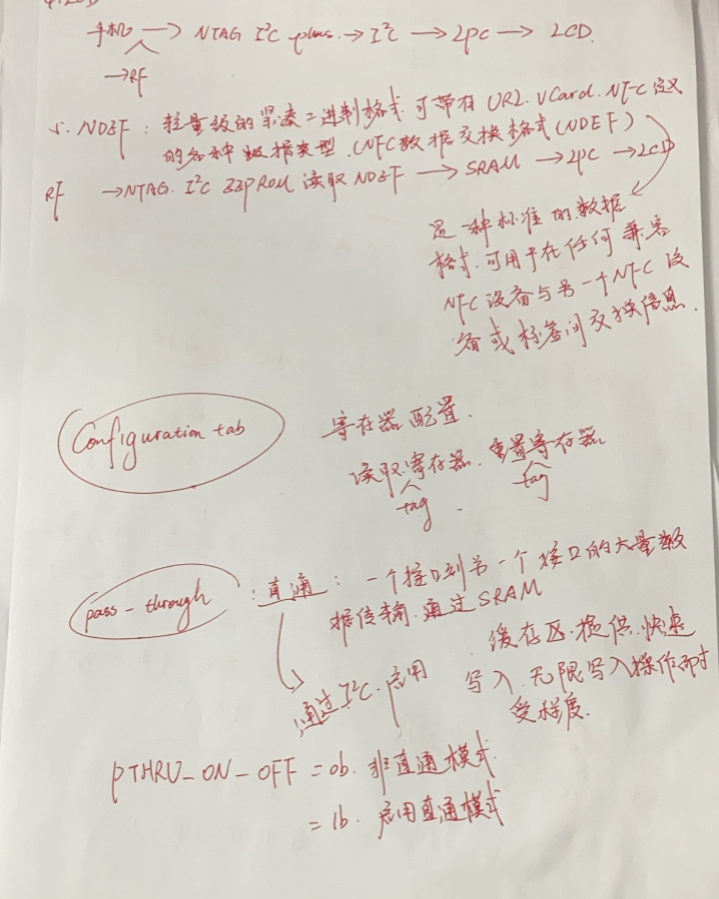 手机 → NTAG I²C plus → I²C → LPC → LCD.
→RF
5. NDEF: 轻量级的紧凑二进制格式. 可带有 URL. vCard. NFC 定义
的各种数据类型. (NFC数据交换格式(NDEF)
RF →NTAG. I²C EEPROM 读取 NDEF → SRAM → LPC → LCD
是一种标准的数据
格式. 可用于在任何兼容
NFC 设备与另一个NFC 设
备或标签间交换信息.
Configuration tab
寄存器 配置.
读取寄存器. 重置寄存器
tag. tag
pass-through : 直通: 一个接口到另一个接口的大量数
据传输. 通过 SRAM
缓存区. 提供. 快速
通过I²C. 启用
写入. 无限写入操作耐
受程度.
PTHRU_ON_OFF = 0b. 非直通模式.
= 1b. 启用直通模式